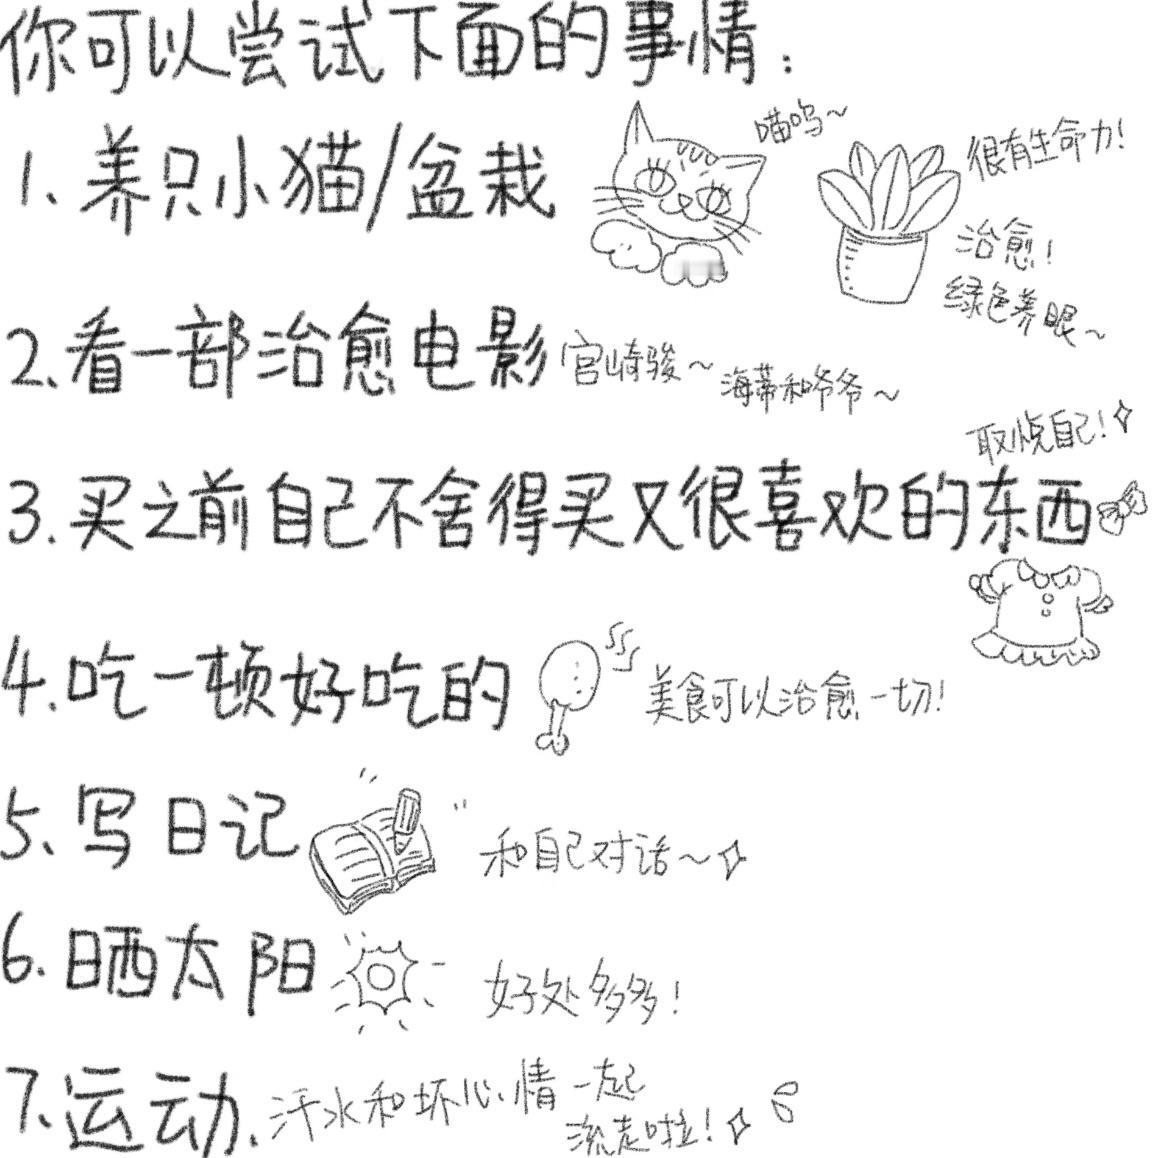 你可以尝试下面的事情：
1、养只小猫/盆栽
喵呜~
很有生命力！
治愈！
绿色养眼~
2、看一部治愈电影
宫崎骏~
海蒂和爷爷~
取悦自己！
3.买之前自己不舍得买又很喜欢的东西
4.吃一顿好吃的
美食可以治愈一切！
5、写日记
和自己对话~
6.晒太阳
好处多多！
7.运动.
汗水和坏心情一起
流走啦！